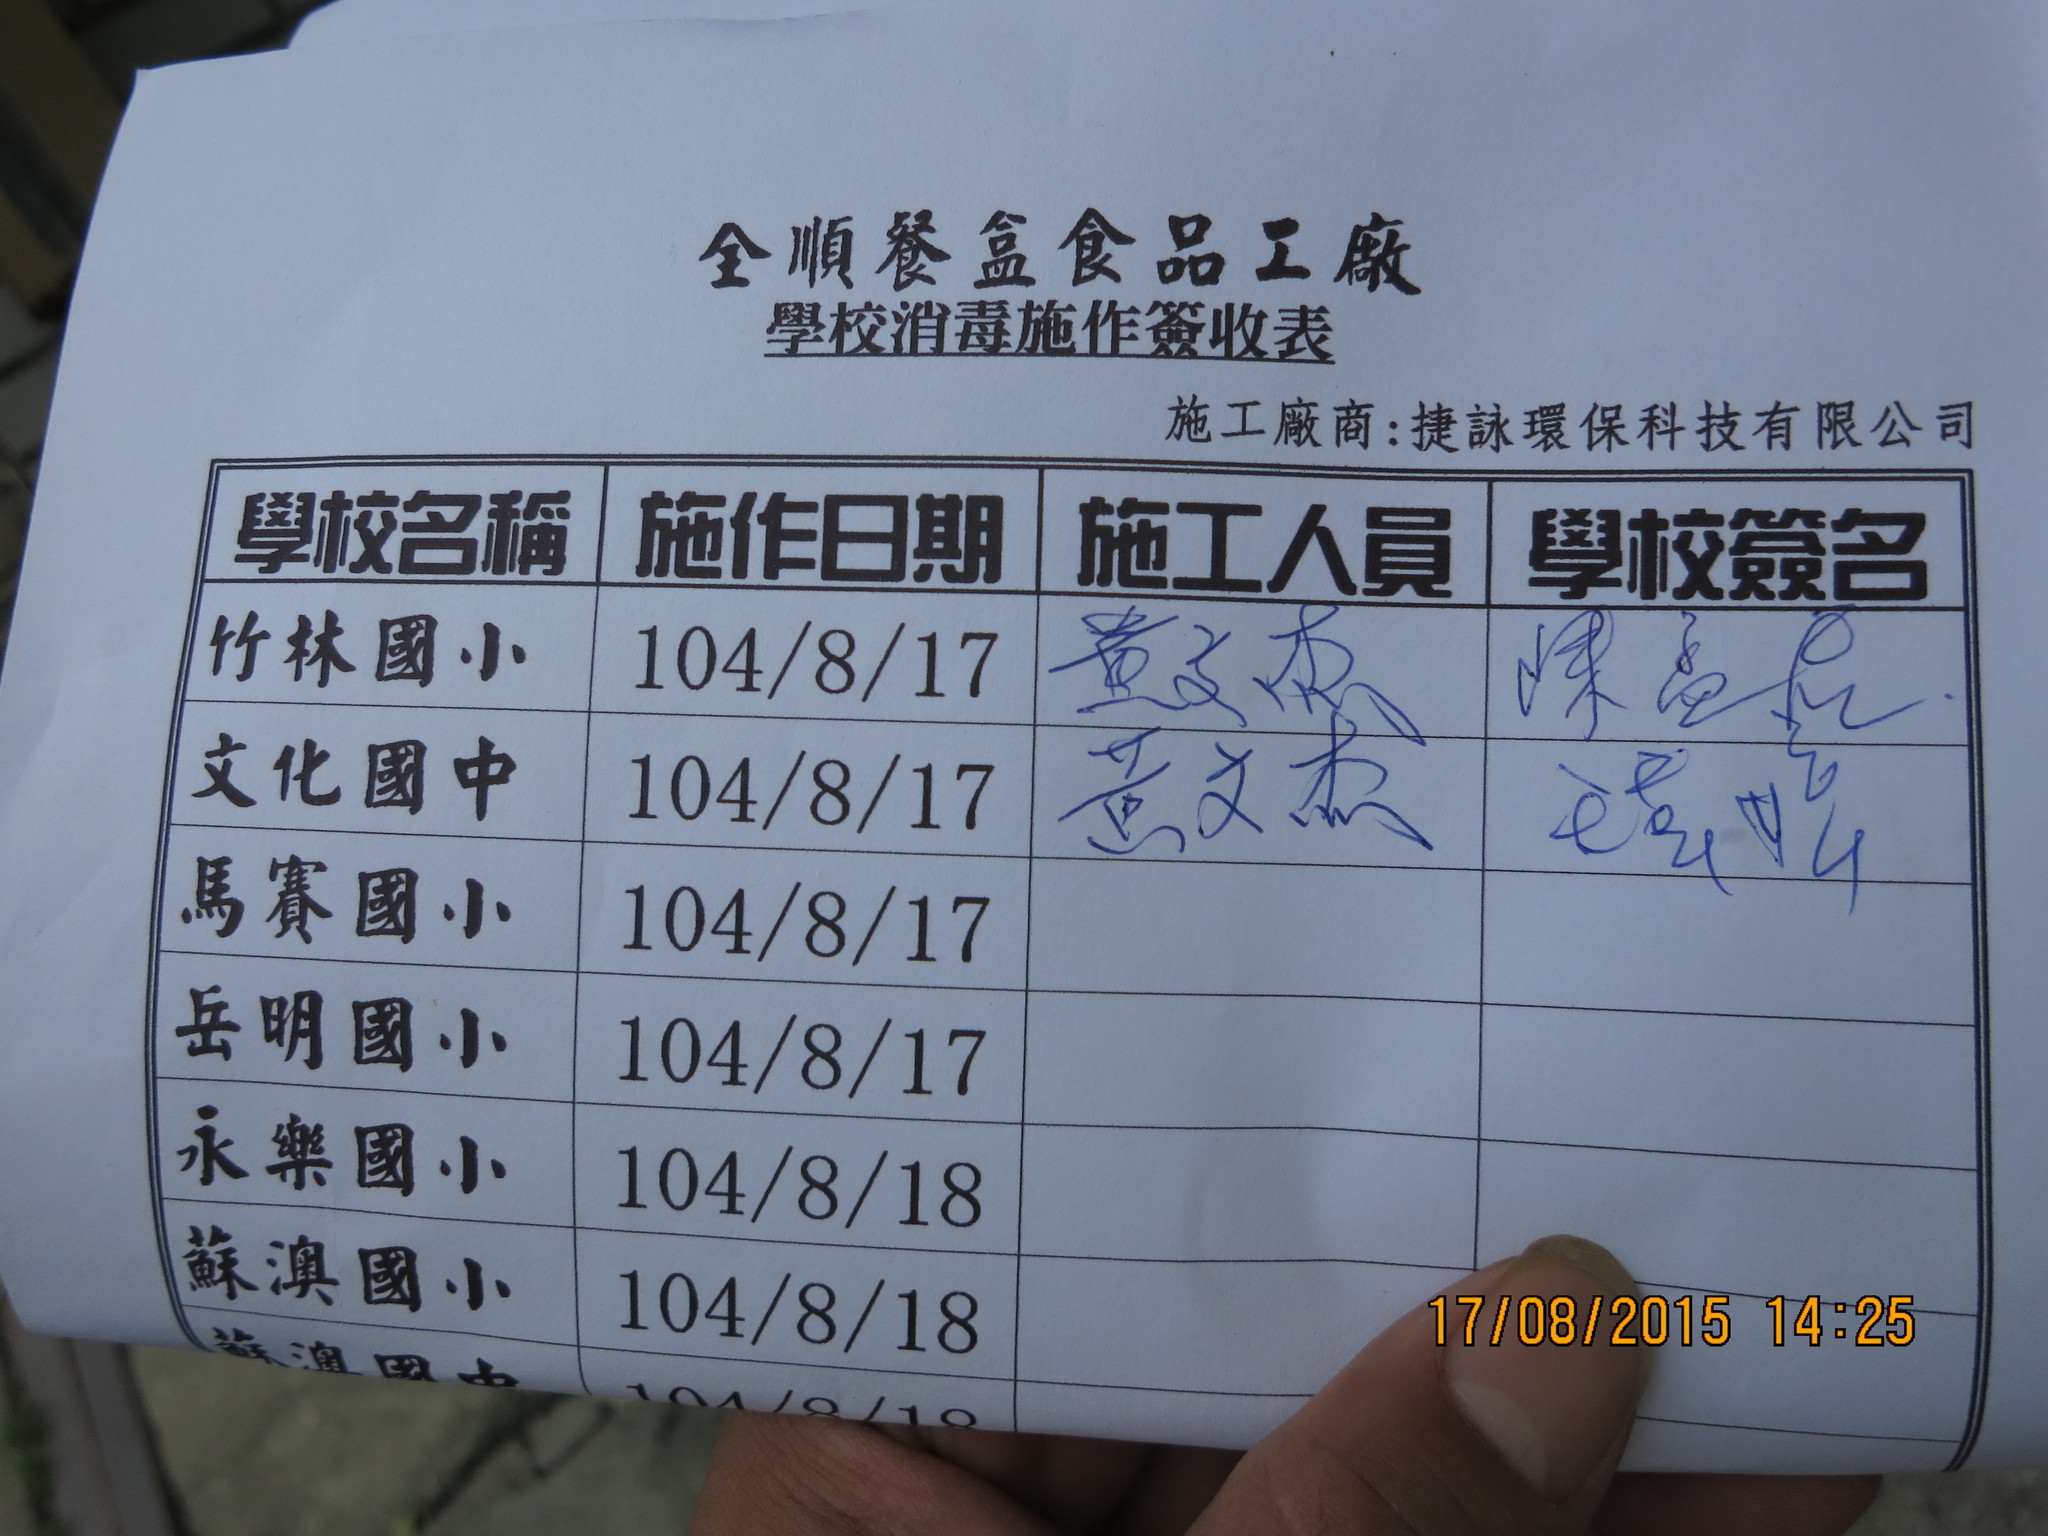 全順餐盒食品工廠
學校消毒施作簽收表
施工廠商:捷詠環保科技有限公司
學校名稱 施作日期 施工人員 學校簽名
竹林國小 104/8/17 黃文杰 陳
文化國中 104/8/17 黃文杰
馬賽國小 104/8/17
岳明國小 104/8/17
永樂國小 104/8/18
蘇澳國小 104/8/18
蘇澳國中 104/8/18
17/08/2015 14:25